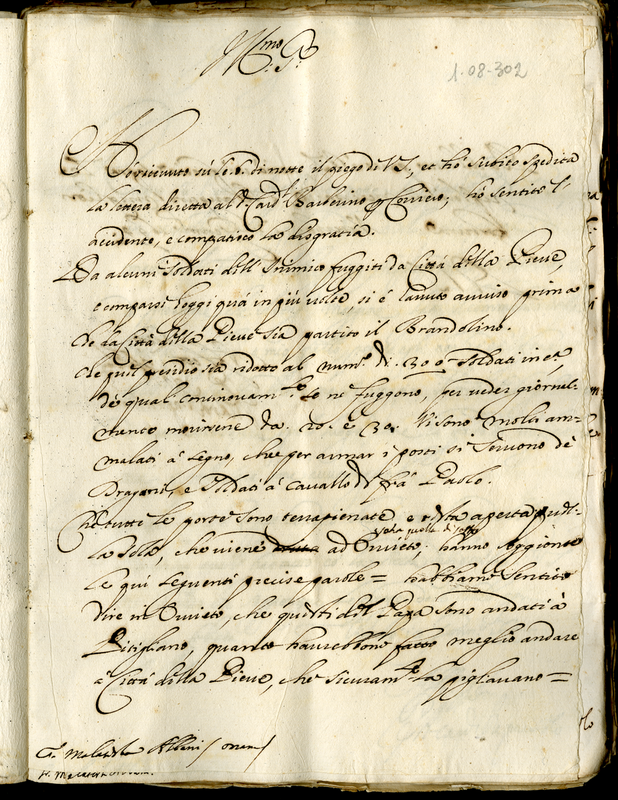 Ill.mo S.r
1-08-302
Hò ricevuto sù le 6. di notte il piego di V.S., et hò subito spedita
la lettera diretta al S. Card. Barberino p Corriero; hò sentito l'
accidente, e compatisco la disgratia.
Da alcuni soldati dell'Inimico fuggiti da Città della Pieve,
e comparsi hoggi quà in più volte, si è havuto avviso prima
che da Città della Pieve sia partito il Brandolino.
che quel presidio sia ridotto al num.o di 300 soldati in ca,
de quali continovam.te se ne fuggono, per veder giornal=
mente morirsene da 20. e 30. Vi sono molti am=
malati à segno, che per armar i posti si servono de
Dragoni, e soldati à cavallo di frà Paolo.
che tutte le porte sono terrapienate, e resta aperta quel=
la sola, che viene ad Orvieto, hanno soggionto
le qui seguenti precise parole = habbiamo sentito
dire in Orvieto, che questi del Papa sono andati à
Pitigliano, quanto haurebbono fatto meglio andare
à Città della Pieve, che sicuram.te la pigliavano=
Malatesta Albani